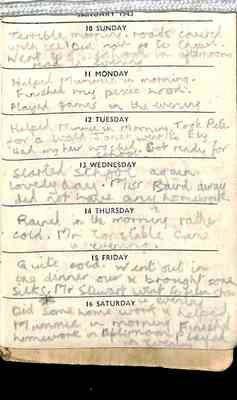 JANUARY 1943
10 SUNDAY
Terrible morning, roads covered
with ice
Went up in afternoon
evening
11 MONDAY
Helped Mummie in morning.
Finished my pixie hood.
Played games in the evening
12 TUESDAY
Helped Mummie in morning. Took Pete
for a walk
Had my hair washed. Got ready for
13 WEDNESDAY
Started School again.
Lovely day. Miss Baird away
did not have any homework
14 THURSDAY
Rained in the morning rather
cold. Mr Constable came
in evening.
15 FRIDAY
Quite cold. Went out in
the dinner hour & brought some
silks. Mr Stewart went
in evening
16 SATURDAY
Did some home work & helped
Mummie in morning. Finished
homework in afternoon. Played
in evening